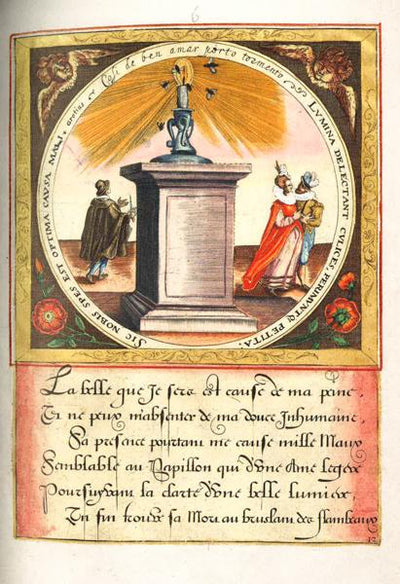 6
Cosi de ben amar porto tormento
LVMINA DELECTANT CVLICES, PERIMVNTQ; PETITA.
SIC NOBIS SPES EST OPTIMA CAVSA MALI, grotius
La belle que Je sers est cause de ma peine,
Et ne peux m'absenter de ma douce Inhumaine,
Sa presance pourtant me cause mille Maux
Semblable au Papillon qui d'vne Ame Legere
Poursuyvant la clarte d'vne belle lumiere,
En fin trouve sa Mort au bruslant des flambeaux
12